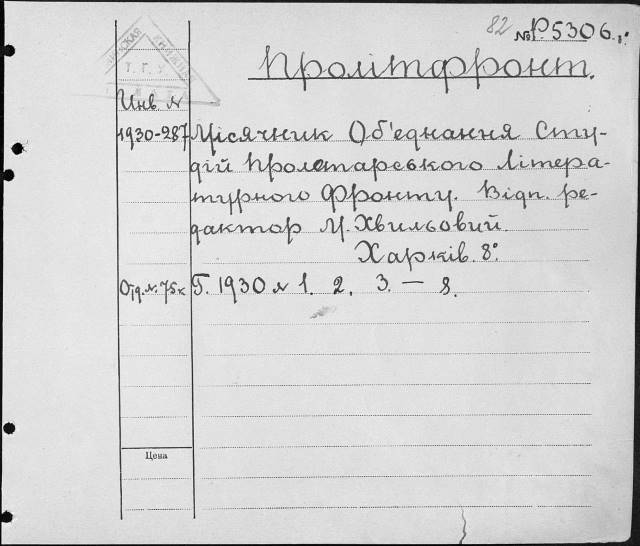 82 № P5306.
КНИЖНАЯ
Т. Г. У.
Пролітфронт.
Инв №
1930-287 Місячник Об'єднання Сту-
дій Пролетарського Літера-
турного Фронту. Відп. ре-
дактор М. Хвильовий.
Харків. 8°.
Отд. №. 75к Г. 1930 № 1. 2. 3. — 8.
Цена